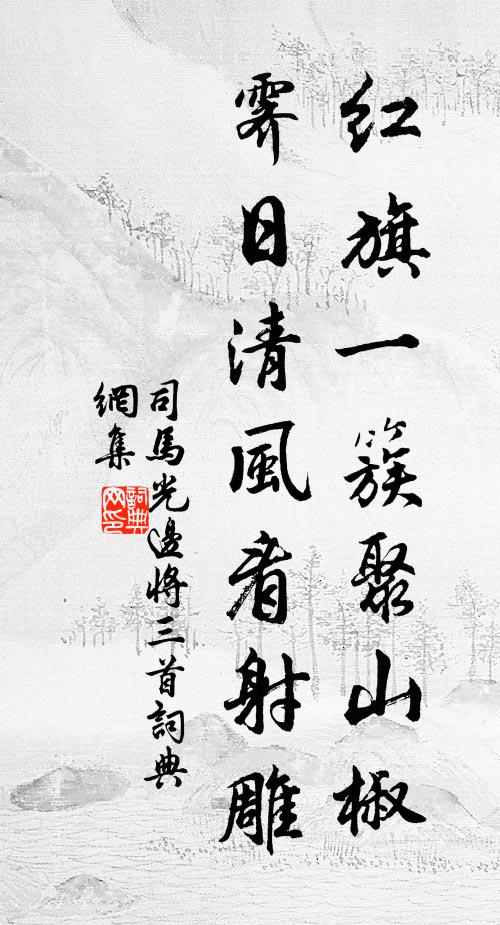 红旗一簇聚山椒
霁日清風看射雕
司馬光邊將三首詞典
網集
詞典
网印